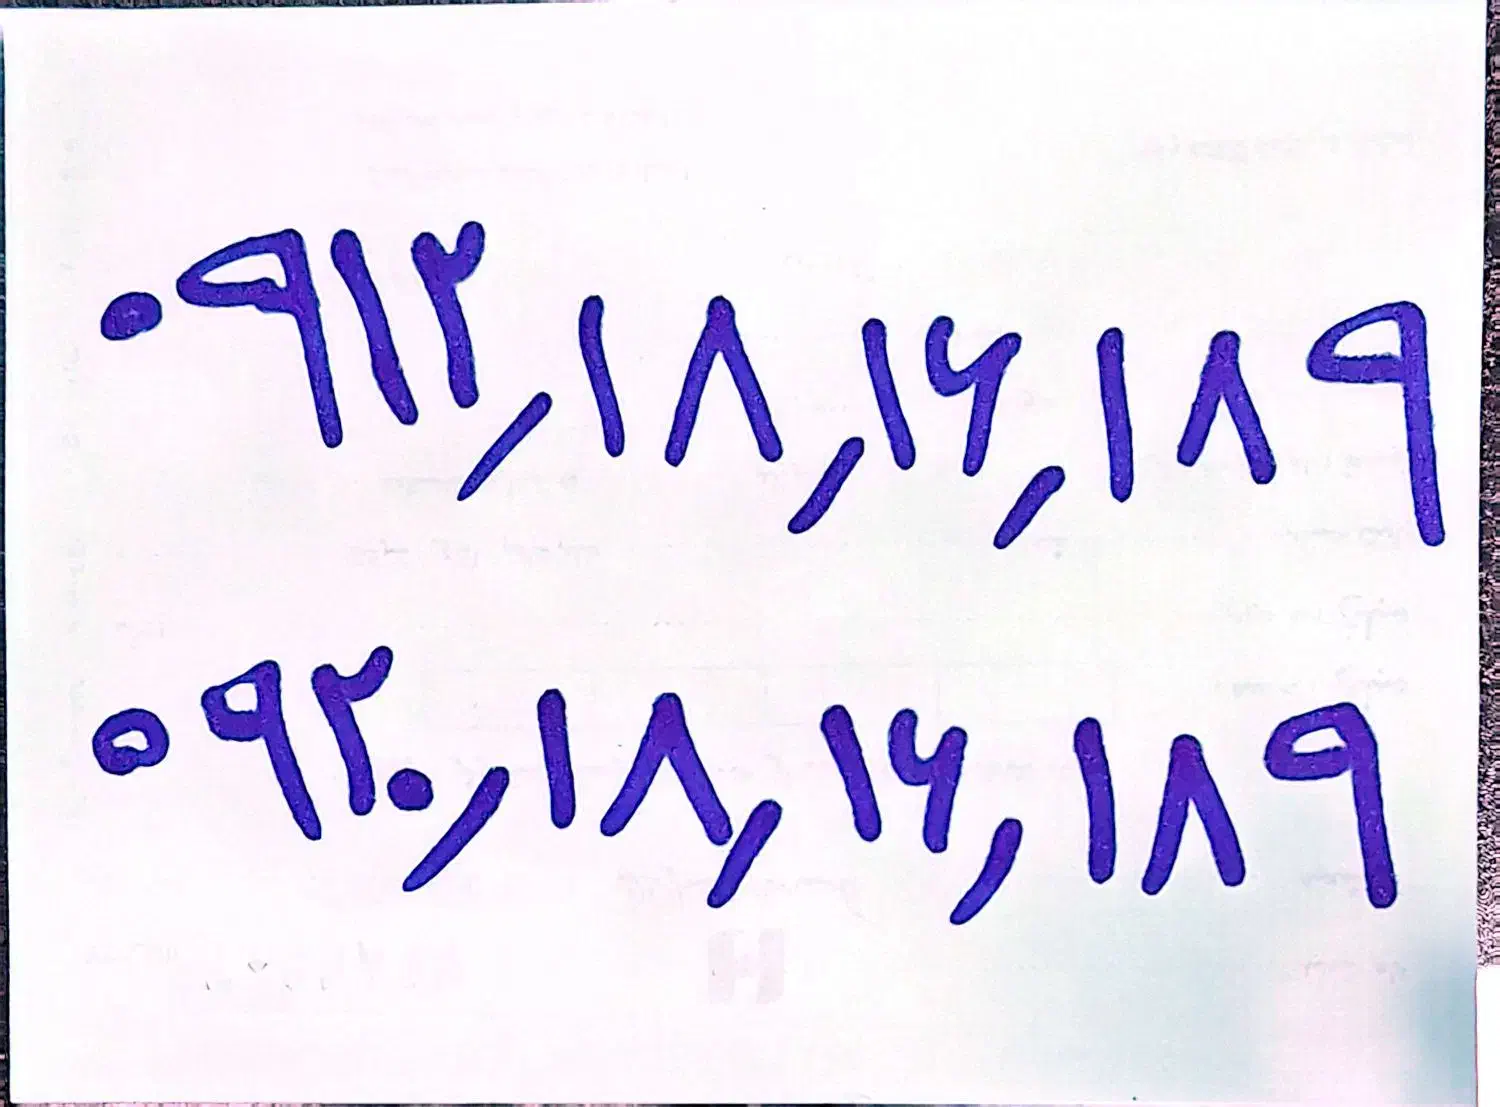 ۰۹۱۲,۱۸,۱۶,۱۸۹
۰۹۲۰,۱۸,۱۶,۱۸۹